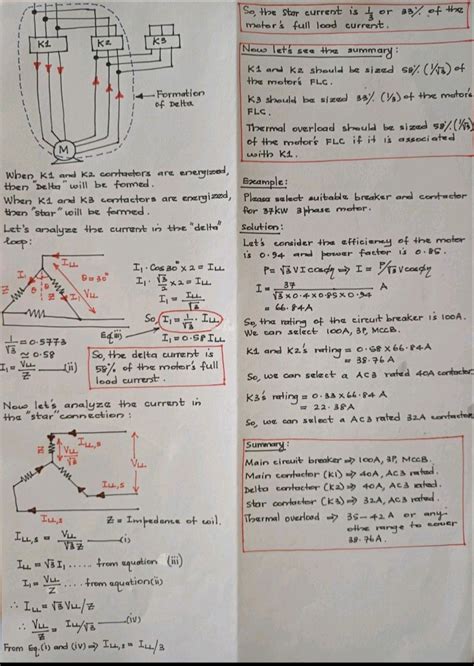 K1
K2
K3
Formation
of Delta
M
When K1 and K2 contactors are energized,
then "Delta" will be formed.
When K1 and K3 contactors are energized,
then "star" will be formed.
Let's analyze the current in the "delta"
loop:
Z
θ
I₁
V_LL
I_LL
θ = 30°
I₁ · Cos30° × 2 = I_LL
I₁ · √3/2 × 2 = I_LL
I₁ = I_LL/√3
So, I₁ = 1/√3 · I_LL
Eq(iii)
I₁ = 0.58 I_LL
1/√3 = 0.5773
≃ 0.58
I₁ = V_LL/Z ——(ii)
So, the delta current is
58% of the motor's full
load current.
Now let's analyze the current in
the "star" connection:
I_LL,s
Z
V_LL/√3
V_LL
I_LL,s
I_LL,s
Z = Impedance of coil.
I_LL,s = V_LL/√3Z ——(i)
I_LL = √3 I₁ ..... from equation (iii)
I₁ = V_LL/Z .... from equation(ii)
∴ I_LL = √3 V_LL/Z
∴ V_LL/Z = I_LL/√3 ——(iv)
From Eq.(i) and (iv) ⇒ I_LL,s = I_LL/3
So, the Star current is 1/3 or 33% of the
motor's full load current.
Now let's see the summary:
K1 and K2 should be sized 58% (1/√3) of
the motor's FLC.
K3 should be sized 33% (1/3) of the motor's
FLC.
Thermal overload should be sized 58% (1/√3)
of the motor's FLC if it is associated
with K1.
Example:
Please select suitable breaker and contactor
for 37kW 3phase motor.
Solution:
Let's consider the efficiency of the motor
is 0.94 and power factor is 0.85.
P = √3 VI cosφη ⇒ I = P/√3 V cosφη
I = 37/√3 × 0.4 × 0.85 × 0.94 A
= 66.84 A
So, the rating of the circuit breaker is 100A.
We can select 100A, 3P, MCCB.
K1 and K2's rating = 0.58 × 66.84 A
= 38.76 A
So, we can select a AC3 rated 40A contactor.
K3's rating = 0.33 × 66.84 A
= 22.38 A
So, we can select a AC3 rated 32A contactor.
Summary:
Main circuit breaker ⇒ 100A, 3P, MCCB.
Main contactor (K1) ⇒ 40A, AC3 rated.
Delta contactor (K2) ⇒ 40A, AC3 rated.
Star contactor (K3) ⇒ 32A, AC3 rated.
Thermal overload ⇒ 35-42A or any
othe range to cover
38.76A.